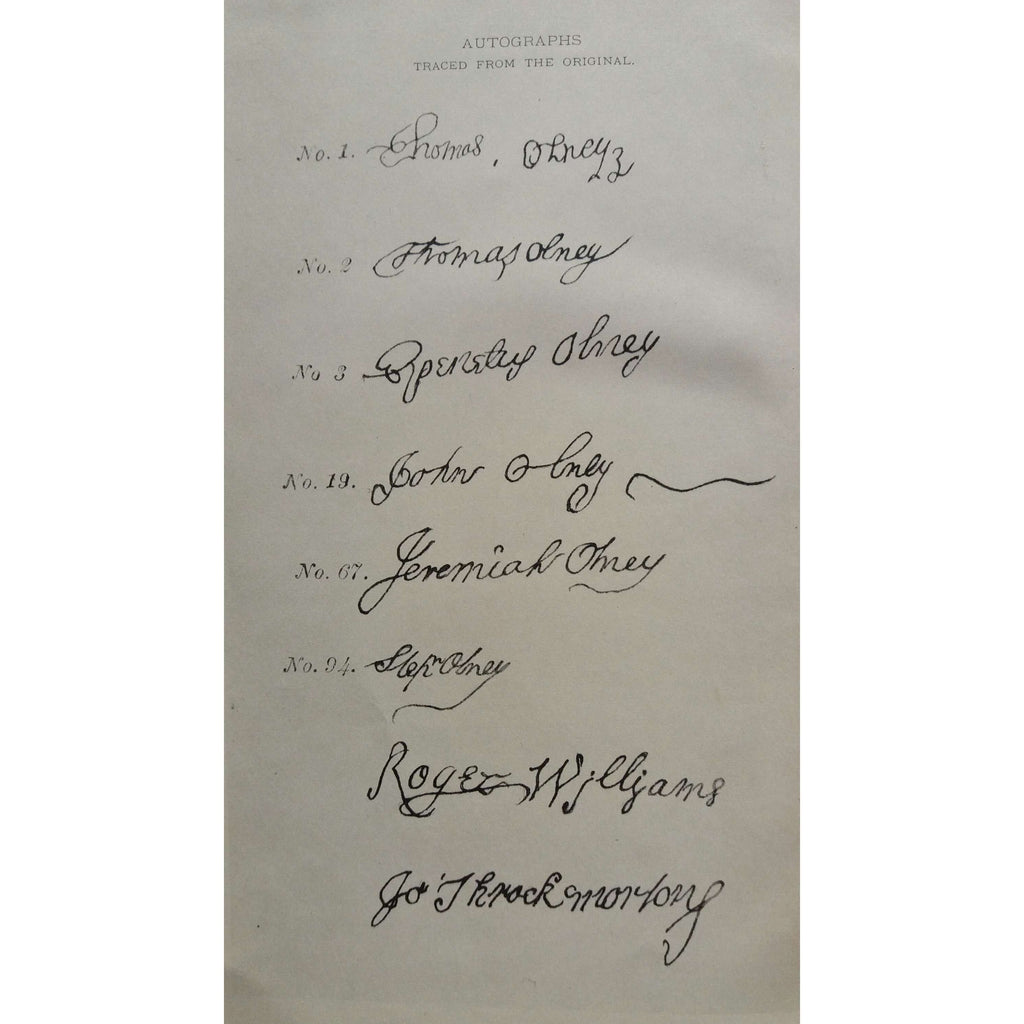 AUTOGRAPHS
TRACED FROM THE ORIGINAL.
No. 1. Thomas, Olney
No. 2 Thomas Olney
No 3 Epenetus Olney
No. 19. John Olney
No. 67. Jeremiah Olney
No. 94. Stepn Olney
Roger Williams
Jo' Throckmorton